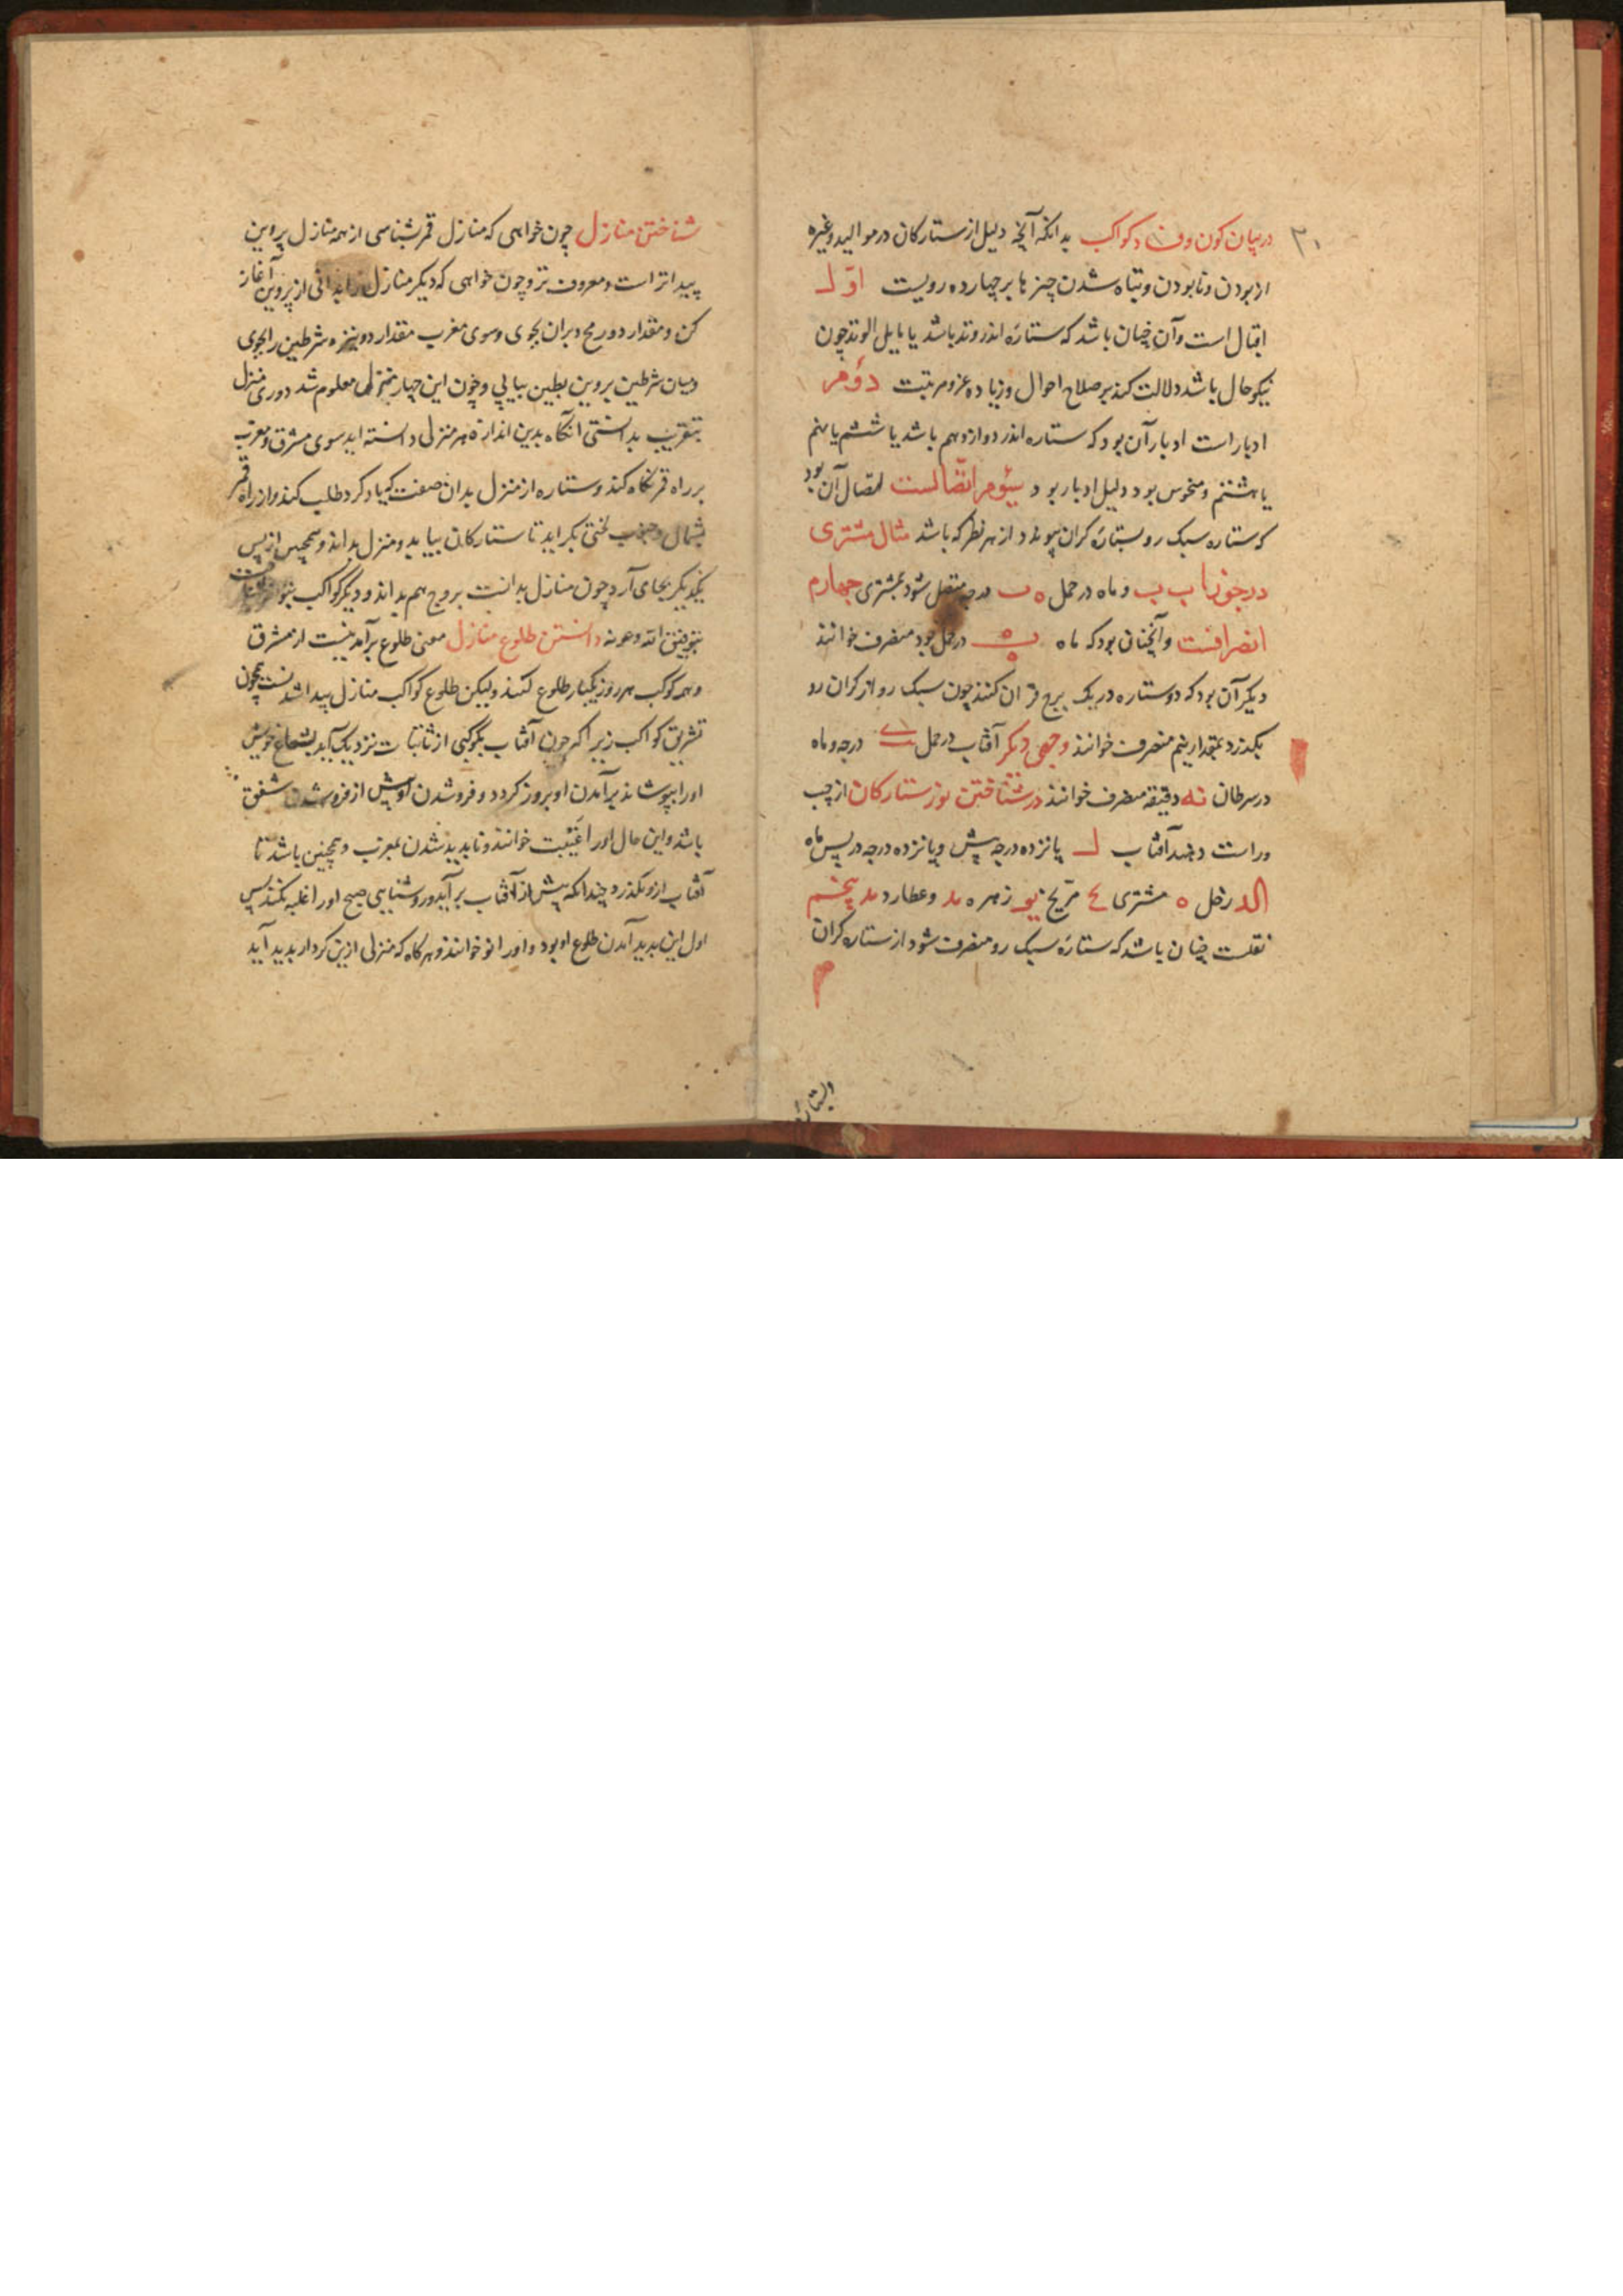 در بیان کون وفساد کواکب بدانکه آنچه دلیل از ستارکان در موالید وغیره
از بودن ونابودن وتباه شدن چیزها بر چهارده رویست اوّل
اقبال است وآن چنان باشد که ستارهٔ اندر وتد باشد یا مایل الوتد چون
نیکو حال باشد دلالت کند بر صلاح احوال وزیاده عز ومرتبت دوّم
ادبار است ادبار آن بود که ستاره اندر دوازدهم باشد یا ششم یا نهم
یا هشتم ومنحوس بود دلیل ادبار بود سیّوم اتّصالست اتصال آن بود
که ستاره سبک رو بستارهٔ کران پیوندد از هر نظر که باشد مثال مشتری
در جوزا ب ب وماه در حمل ه ب درجه متصل شود بمشتری چهارم
انصرافست وآنچنان بود که ماه در حمل بود منصرف خوانند
دیگر آن بود که دو ستاره در یک برج قران کنند چون سبک رو از کران رو
بکذرد بمقدار نیم منصرف خوانند وجهی دیکر آفتاب در حمل درجه وماه
در سرطان نه دقیقه منصرف خوانند در شناختن نور ستارکان از چپ
وراست وجند آفتاب پانزده درجه پیش وپانزده درجه در پس ماه
زحل ه مشتری مریخ زهره وعطارد پنجم
نقلست چنان باشد که ستارهٔ سبک رو منصرف شود از ستاره کران
وبستارهٔ
شناختن منازل چون خواهی که منازل قمر بشناسی از همه منازل پروین
پیداتر است ومعروف تر وچون خواهی که دیکر منازل را بدانی از پروین آغاز
کن ومقدار دو رمح دبران بجوی وسوی مغرب مقدار دو نیزه شرطین را بجوی
ومیان شرطین پروین بطین بیابی وچون این چهار منزل معلوم شد دوری منزل
بتقریب بدانستی آنکاه بدین اندازه هر منزلی دانسته اید سوی مشرق ومغرب
بر راه قمر نکاه کند وستاره از منزل بدان صفت که یاد کرد طلب کند واز راه قمر
بشمال وجنوب لختی بکراید تا ستارکان بیابد ومنزل بداند وهمچنین از پس
یکدیکر بجای آرد چون منازل بدانست بروج هم بداند ودیکر کواکب بتواند شناخت
بتوفیق الله وعونه دانستن طلوع منازل معنی طلوع برآمدنست از مشرق
وهمه کوکب هر روز یکبار طلوع کنند ولیکن طلوع کواکب منازل پیدا شدنست همچون
تشریق کواکب زیرا کر چون آفتاب بکوکبی از ثابتات نزدیک آید بشعاع خویش
اورا بپوشاند برآمدن او بروز کردد وفروشدن او پیش از فروشدن شفق
باشد واین حال اورا غیبت خوانند وناپدید شدن بمغرب وهمچنین باشد تا
آفتاب ازو بکذرد چندانکه پیش از آفتاب برآید وروشنایی صبح اورا غلبه نکند پس
اول این پدید آمدن طلوع او بود واورا نو خوانند وهرکاه که منزلی ازین کردار پدید آید